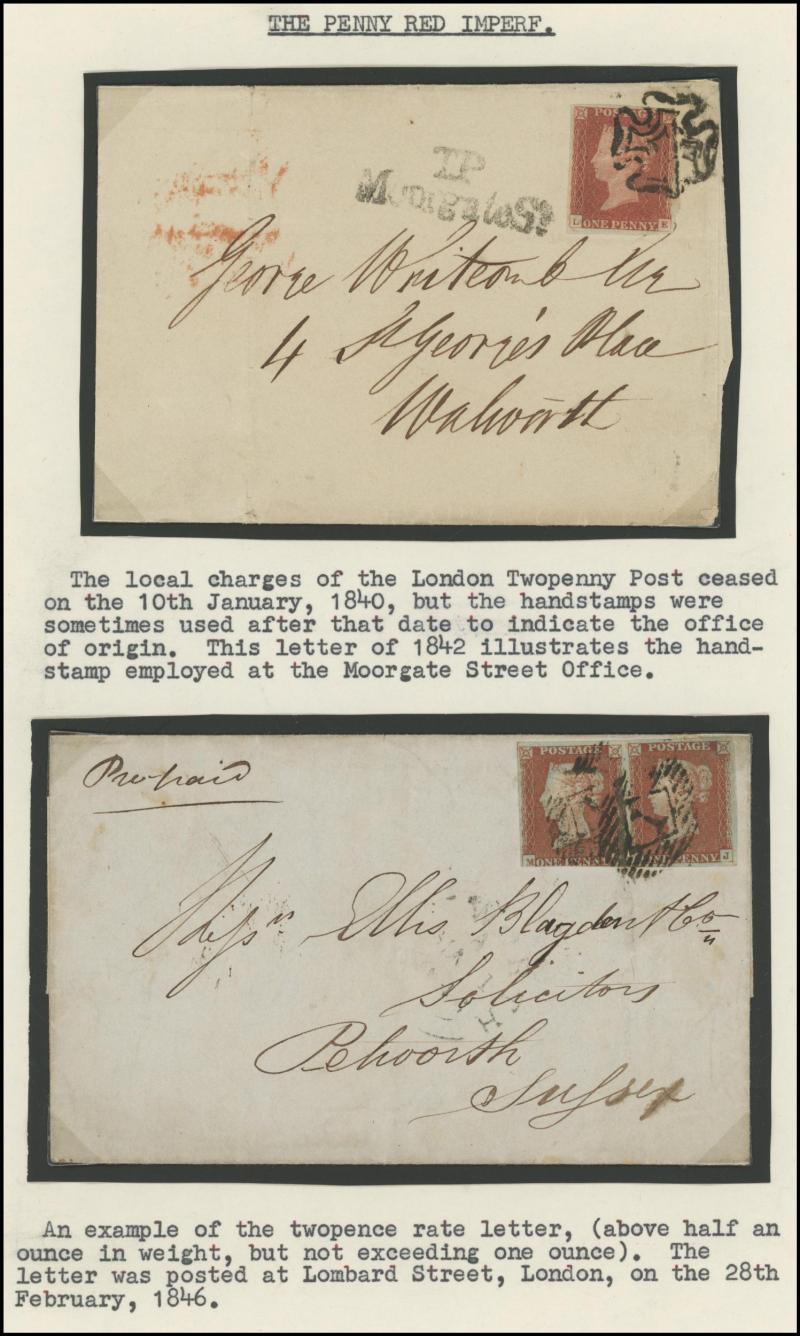 THE PENNY RED IMPERF.
POSTAGE
T.P
Moorgate St
L E
ONE PENNY
George Whitcomb Esq
4 St George's Place
Walworth
The local charges of the London Twopenny Post ceased
on the 10th January, 1840, but the handstamps were
sometimes used after that date to indicate the office
of origin. This letter of 1842 illustrates the hand-
stamp employed at the Moorgate Street Office.
Pre-paid
POSTAGE POSTAGE
M ONE PENNY PENNY J
Messrs Ellis Blagden & Co
Solicitors
Petworth
Sussex
An example of the twopence rate letter, (above half an
ounce in weight, but not exceeding one ounce). The
letter was posted at Lombard Street, London, on the 28th
February, 1846.